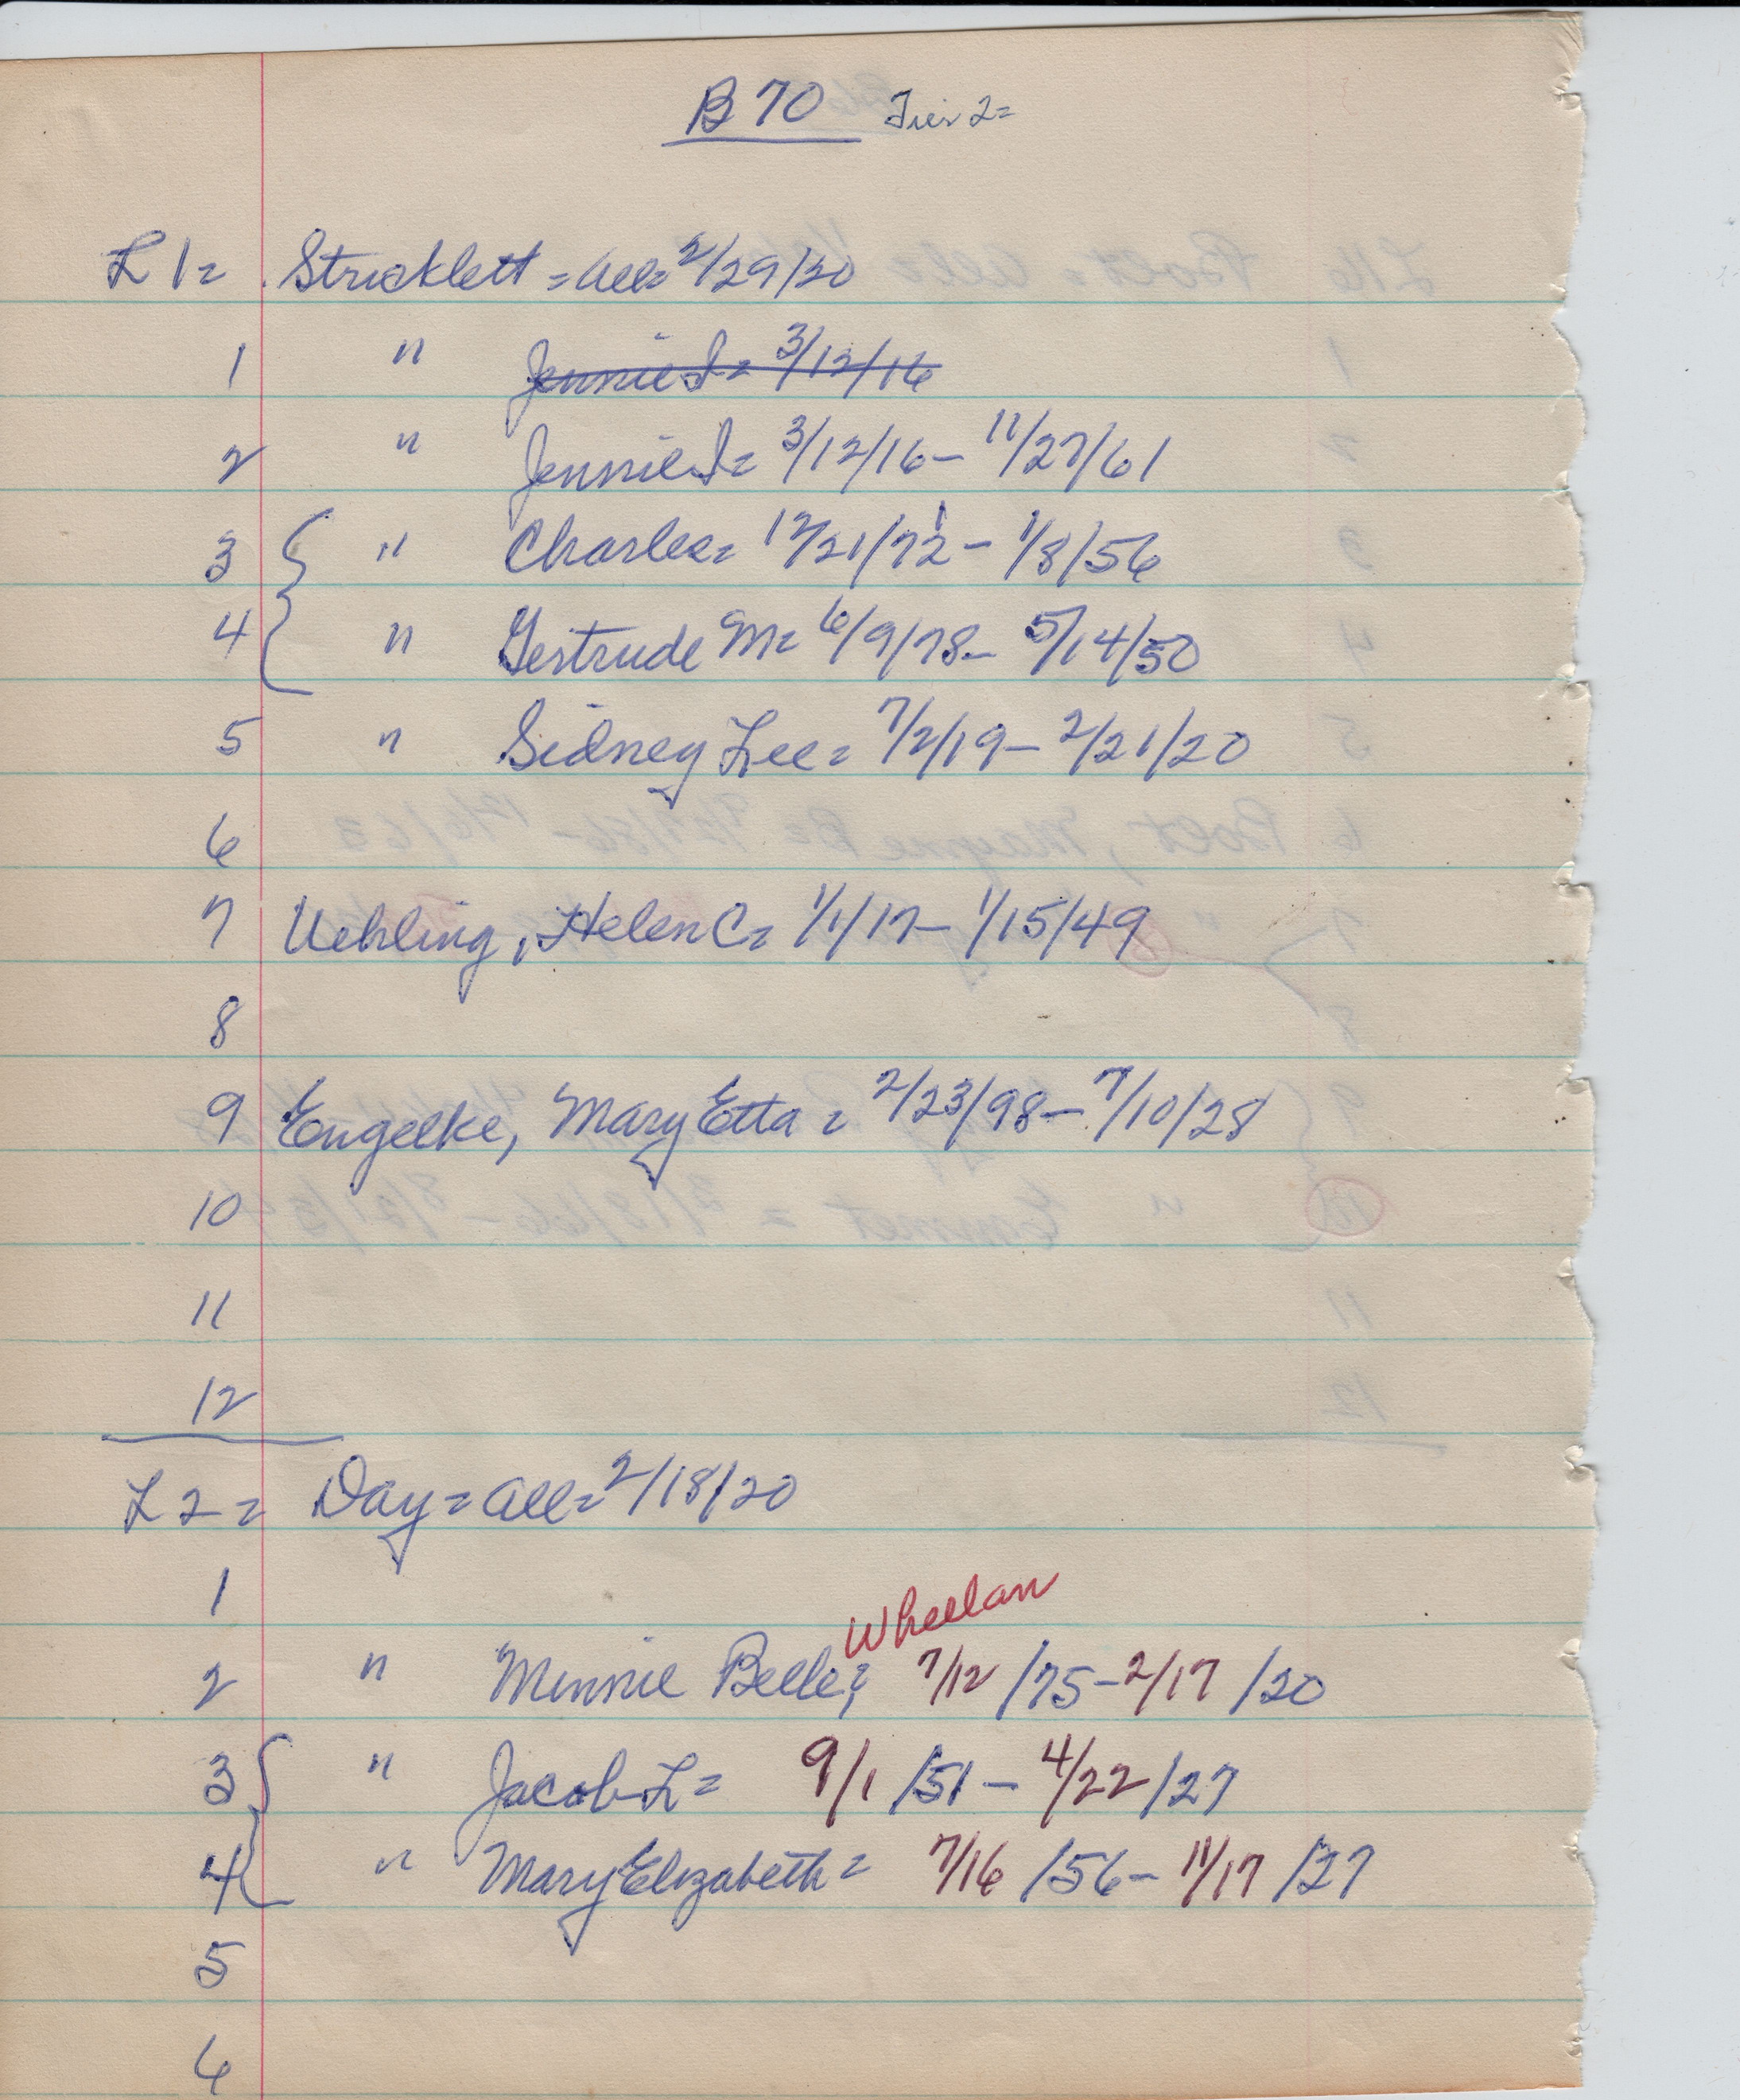 B 70 Tier 2=
L 1= Stricklett = All= 2/29/20
1 " Jennie I= 3/12/16
2 " Jennie I= 3/12/16 - 11/27/61
3 " Charles= 12/21/72 - 1/8/56
4 " Gertrude M= 6/9/78 - 5/14/50
5 " Sidney Lee= 7/2/19 - 2/21/20
6
7 Uehling, Helen C= 1/1/17 - 1/15/49
8
9 Engelke, Mary Etta = 2/23/98 - 7/10/28
10
11
12
L 2= Day = All= 2/18/20
1
Wheelan
2 " Minnie Belle= 7/12/75 - 2/17/20
3 " Jacob L= 9/1/51 - 4/22/27
4 " Mary Elizabeth= 7/16/56 - 11/17/27
5
6